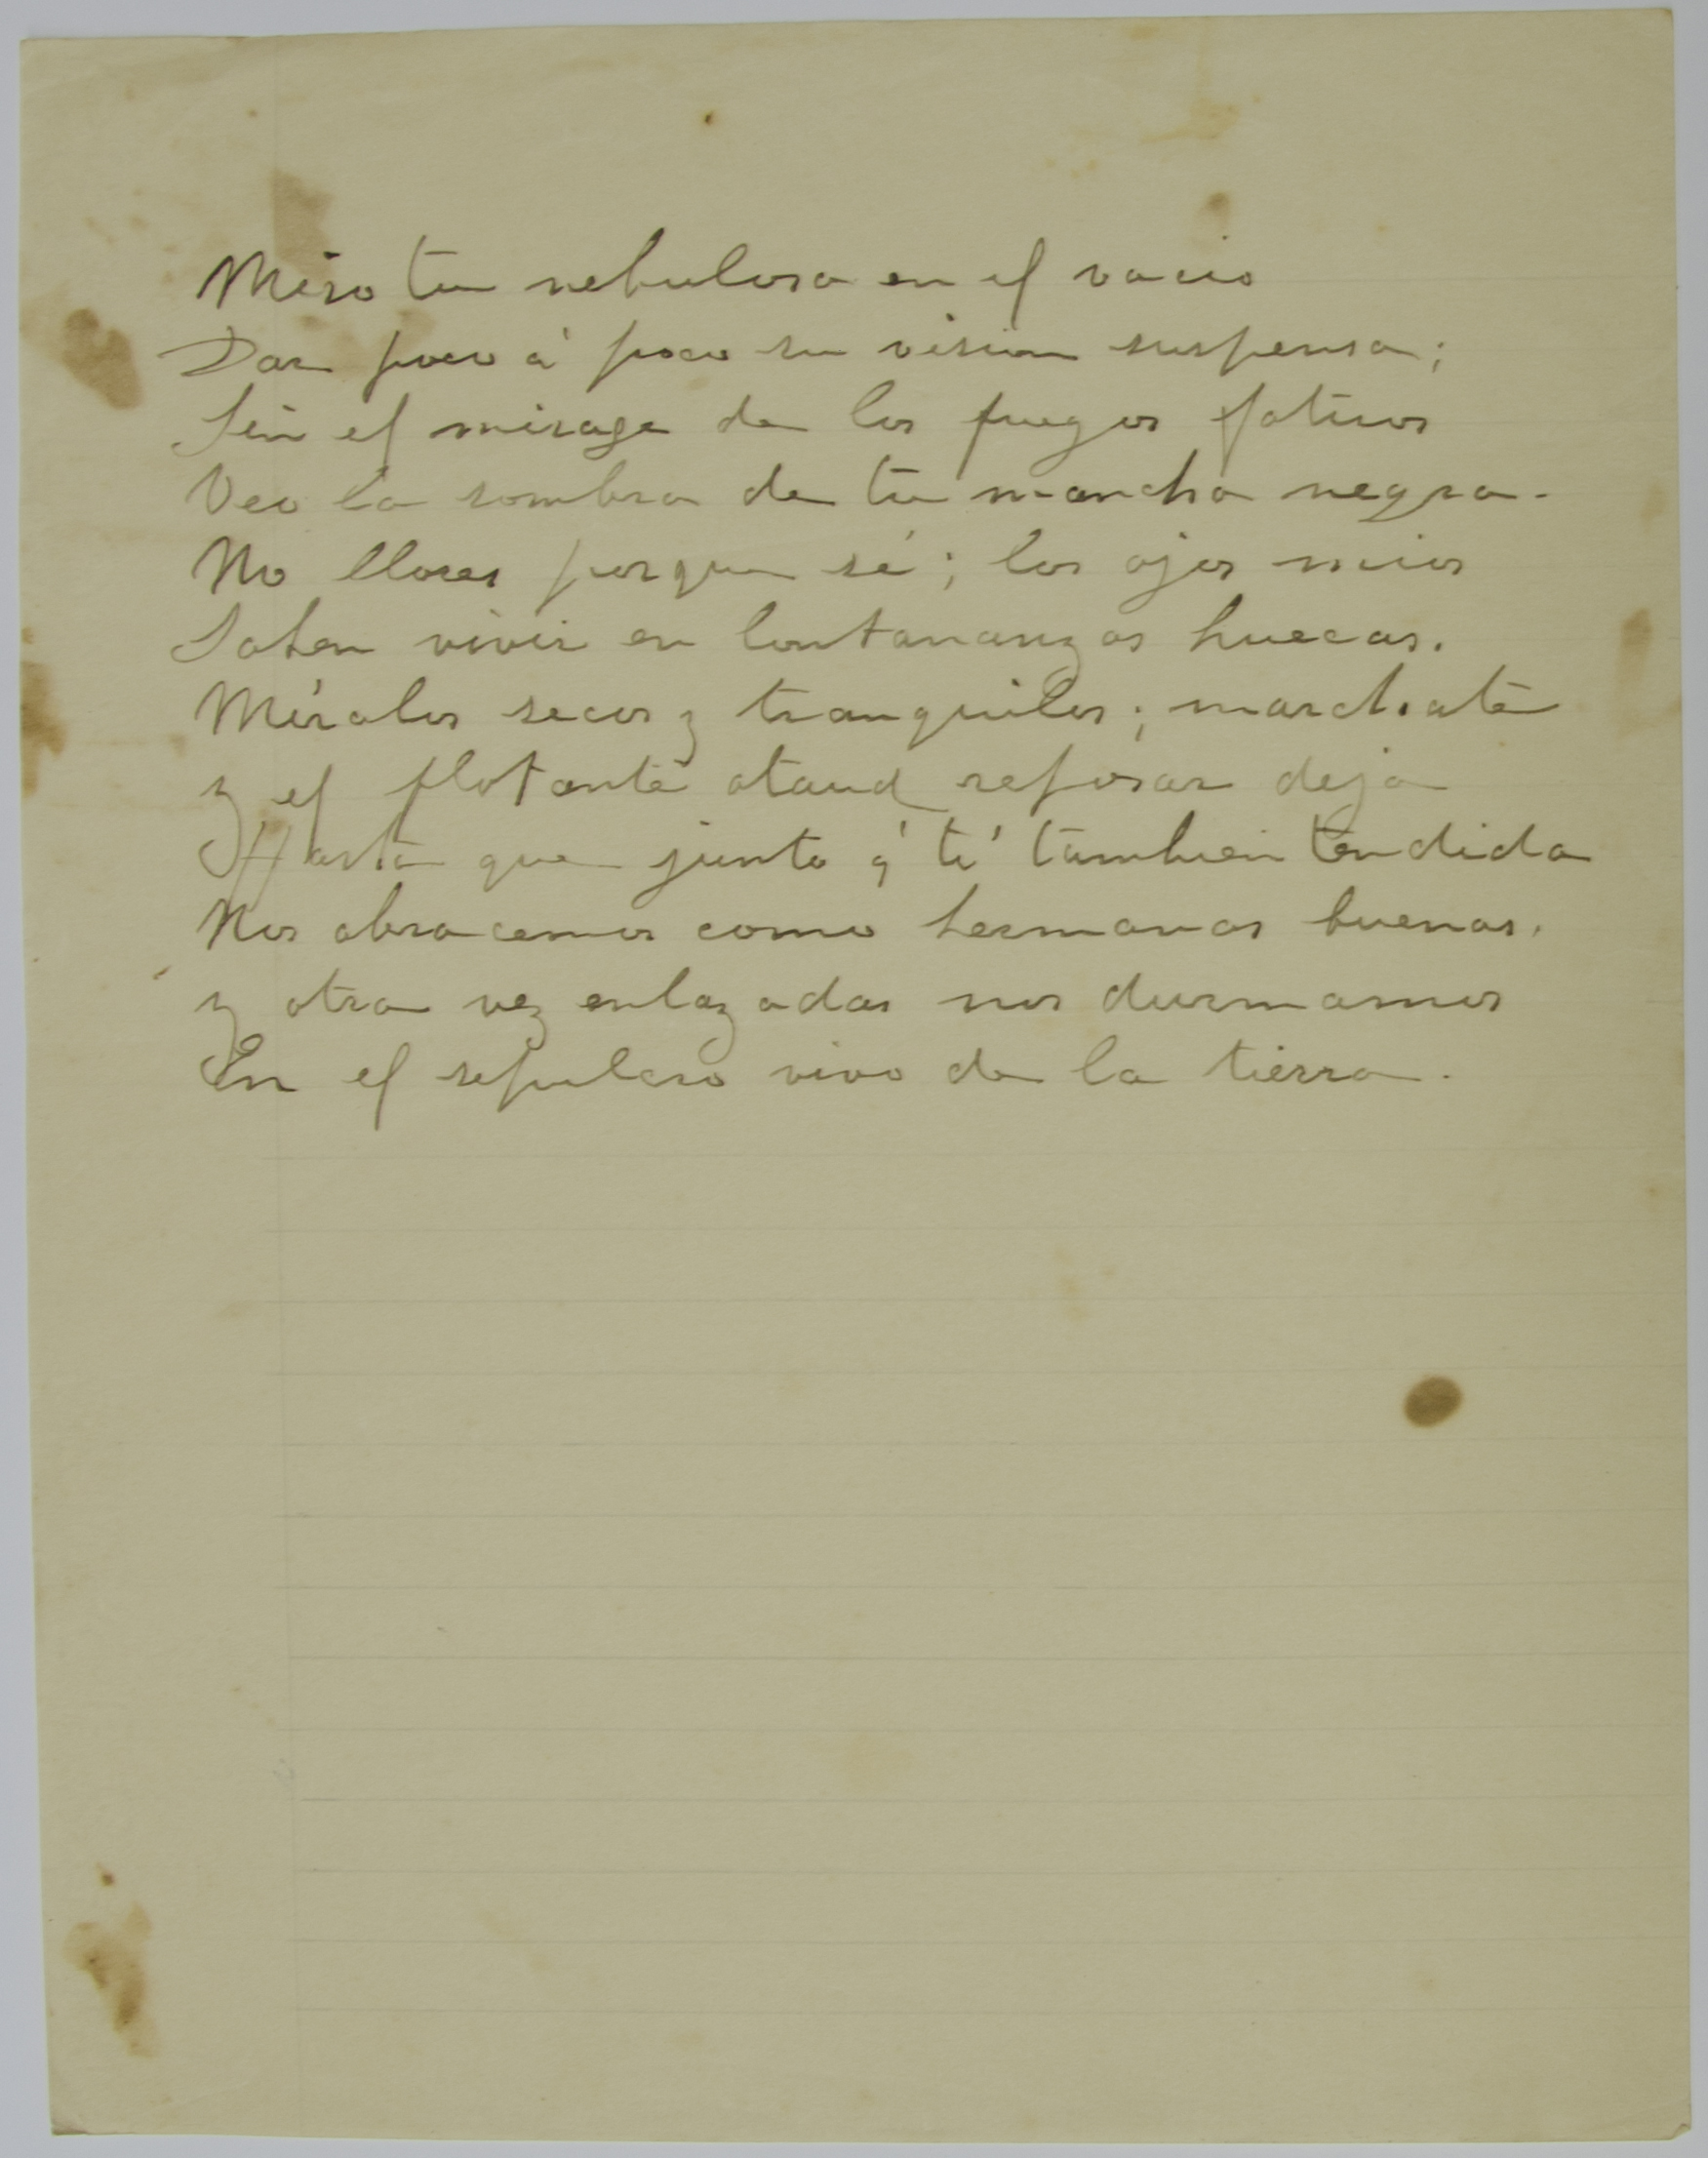 Miro tu nebulosa en el vacio
Dar poco á poco su vision suspensa;
Sin el mirage de los fuegos fatuos
Veo la sombra de tu mancha negra.
No llores porque sé; los ojos mios
Saben vivir en lontananzas huecas.
Míralos secos y tranquilos; marchate
y el flotante ataud reposar deja
Hasta que junto á tí tambien tendida
Nos abracemos como hermanas buenas.
y otra vez enlazadas nos durmamos
En el sepulcro vivo de la tierra.